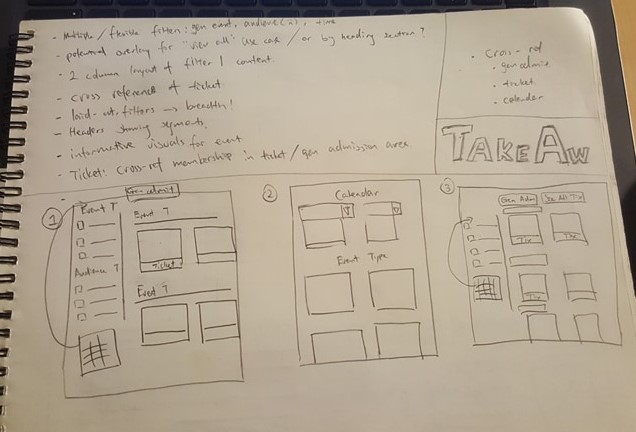 - Multiple / flexible filters: gen event, audience (..), time
- potential overlay for "view all" use case / or by heading section?
- 2 column layout of filter | content
- cross reference of ticket
- laid-out filters → breadth!
- Headers showing segments
- informative visuals for event
- Ticket: cross-ref membership in ticket / gen admission area
• Cross-ref
• gen admis
• ticket
• calendar
TAKEAW
①
Gen admit
Event T
Audience T
Event T
Ticket
Event T
②
Calendar
Event Type
③
Gen Adm
See All Tix
Tix
Tix
Tix